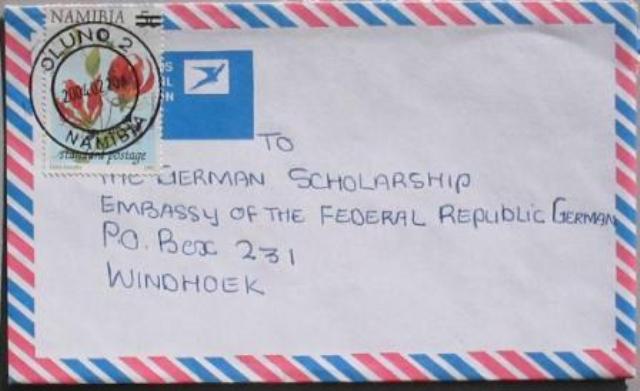 NAMIBIA 5c
OLUNO 2
NAMIBIA
standard postage
TO
THE GERMAN SCHOLARSHIP
EMBASSY OF THE FEDERAL REPUBLIC GERMAN
P.O. Box 231
WINDHOEK